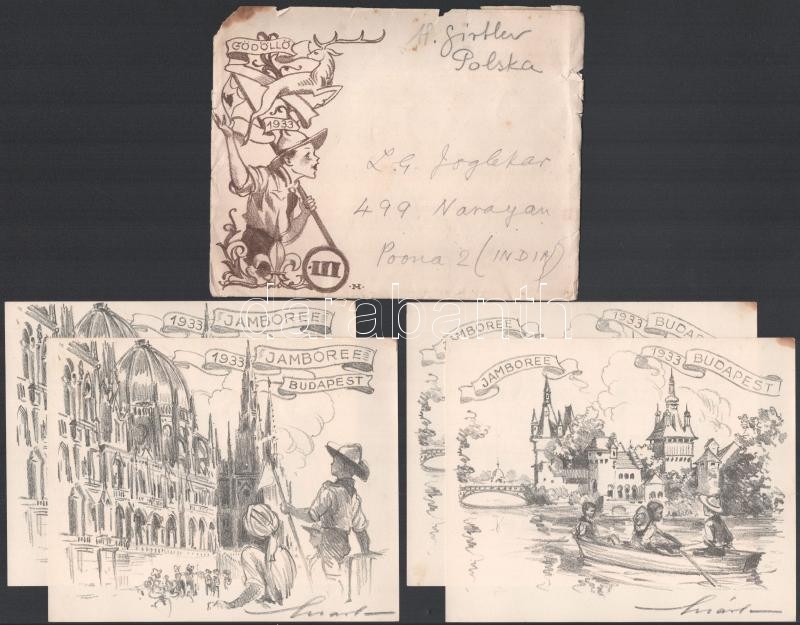 GÖDÖLLŐ
1933
III
N
H. Girtler
Polska
L.G. Joglekar
499 Narayan
Poona 2 (INDIA)
darabanth
1933 JAMBOREE
1933 JAMBOREE
BUDAPEST
JAMBOREE
1933 BUDAPEST
JAMBOREE
1933 BUDAPEST